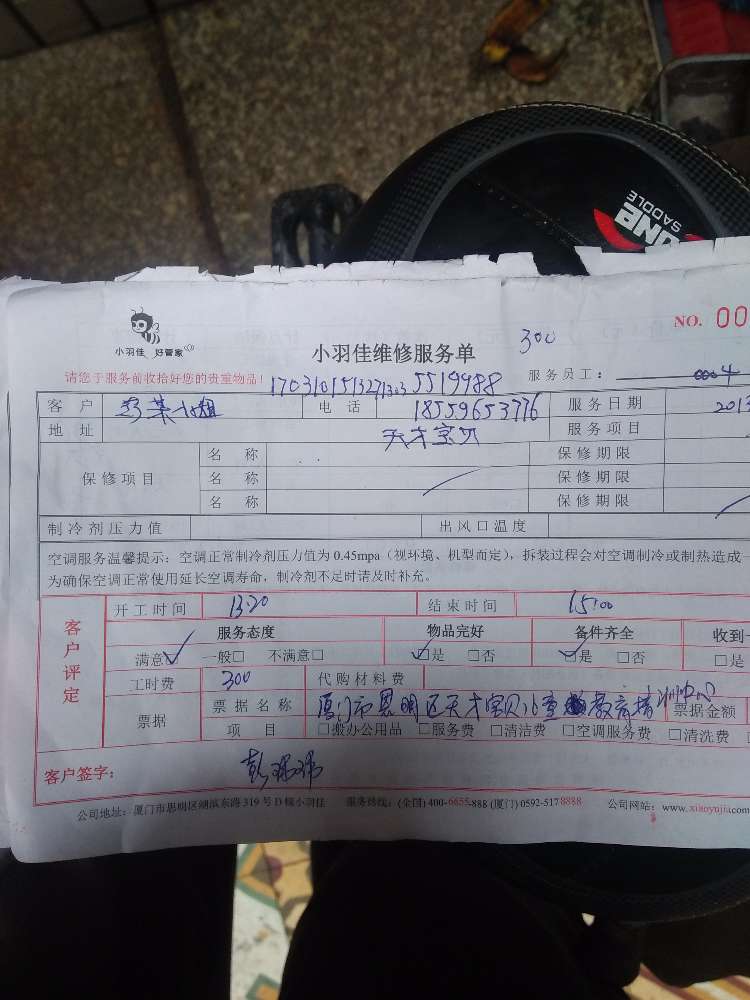 ONE
SADDLE
NO. 00
小羽佳 好管家
小羽佳维修服务单
300
请您于服务前收拾好您的贵重物品！
服务员工： 0004
5519488
客户 小姐 电话 18559653776 服务日期 2013
地址 天才宝贝 服务项目
保修项目 名称 保修期限
名称 保修期限
名称 保修期限
制冷剂压力值 出风口温度
空调服务温馨提示：空调正常制冷剂压力值为 0.45mpa（视环境、机型而定），拆装过程会对空调制冷或制热造成一
为确保空调正常使用延长空调寿命，制冷剂不足时请及时补充。
客户评定 开工时间 13:20 结束时间 15:00
服务态度 物品完好 备件齐全 收到一
满意☑ 一般□ 不满意□ ☑是 □否 ☑是 □否 □是
工时费 300 代购材料费
票据 票据名称 厦门市思明区天才宝贝儿童教育培训中心 票据金额
项目 □搬办公用品 □服务费 □清洁费 □空调服务费 □清洗费
客户签字：
公司地址：厦门市思明区湖滨东路 319 号 D 幢小羽佳 服务热线：(全国) 400-6655-888 (厦门) 0592-5178888 公司网站：www.xiaoyujia.com